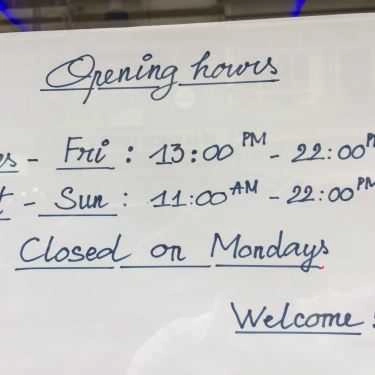 Opening hours
es - Fri : 13:00 PM - 22:00 P
t - Sun : 11:00 AM - 22:00 PM
Closed on Mondays
Welcome